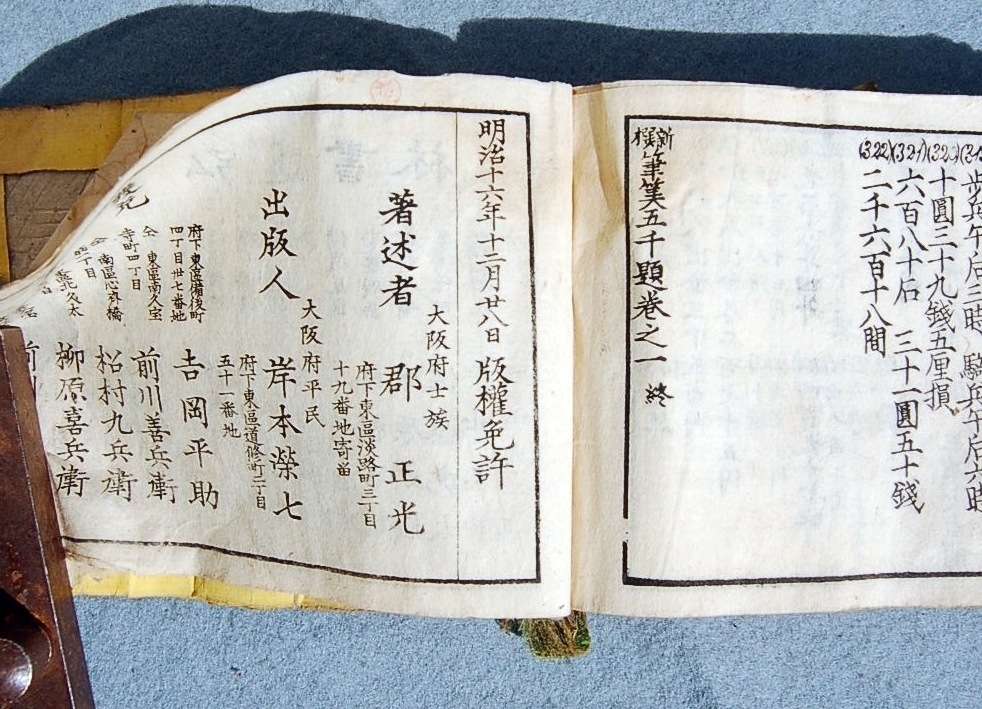 歩兵午后三時 騎兵午后六時
(320)
十圓三十九錢五厘損
(321)
六百八十后 三十一圓五十錢
(322)
二千六百十八間
新撰筆筭五千題卷之一 終
明治十六年十二月廿八日 版權免許
大阪府士族
著述者 郡 正光
府下東區淡路町三丁目
十九番地寄留
大阪府平民
出版人 岸本榮七
府下東區道修町二丁目
五十一番地
府下東區備後町
四丁目廿七番地
吉岡平助
仝 東區南久宝
寺町四丁目
前川善兵衛
南區心斎橋
松村九兵衛
柳原喜兵衛